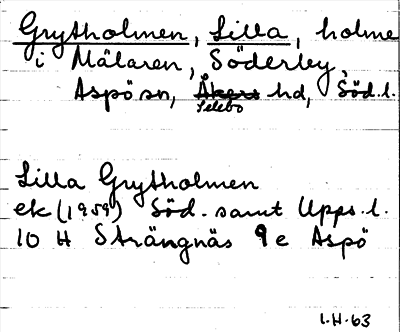 Grytholmen, Lilla, holme
i Mälaren, Söderley,
Aspö sn, Åkers hd, Söd.l.
Selebo
Lilla Grytholmen
ek (1959) Söd. samt Upps.l.
10 H Strängnäs 9 e Aspö
I.H. 63